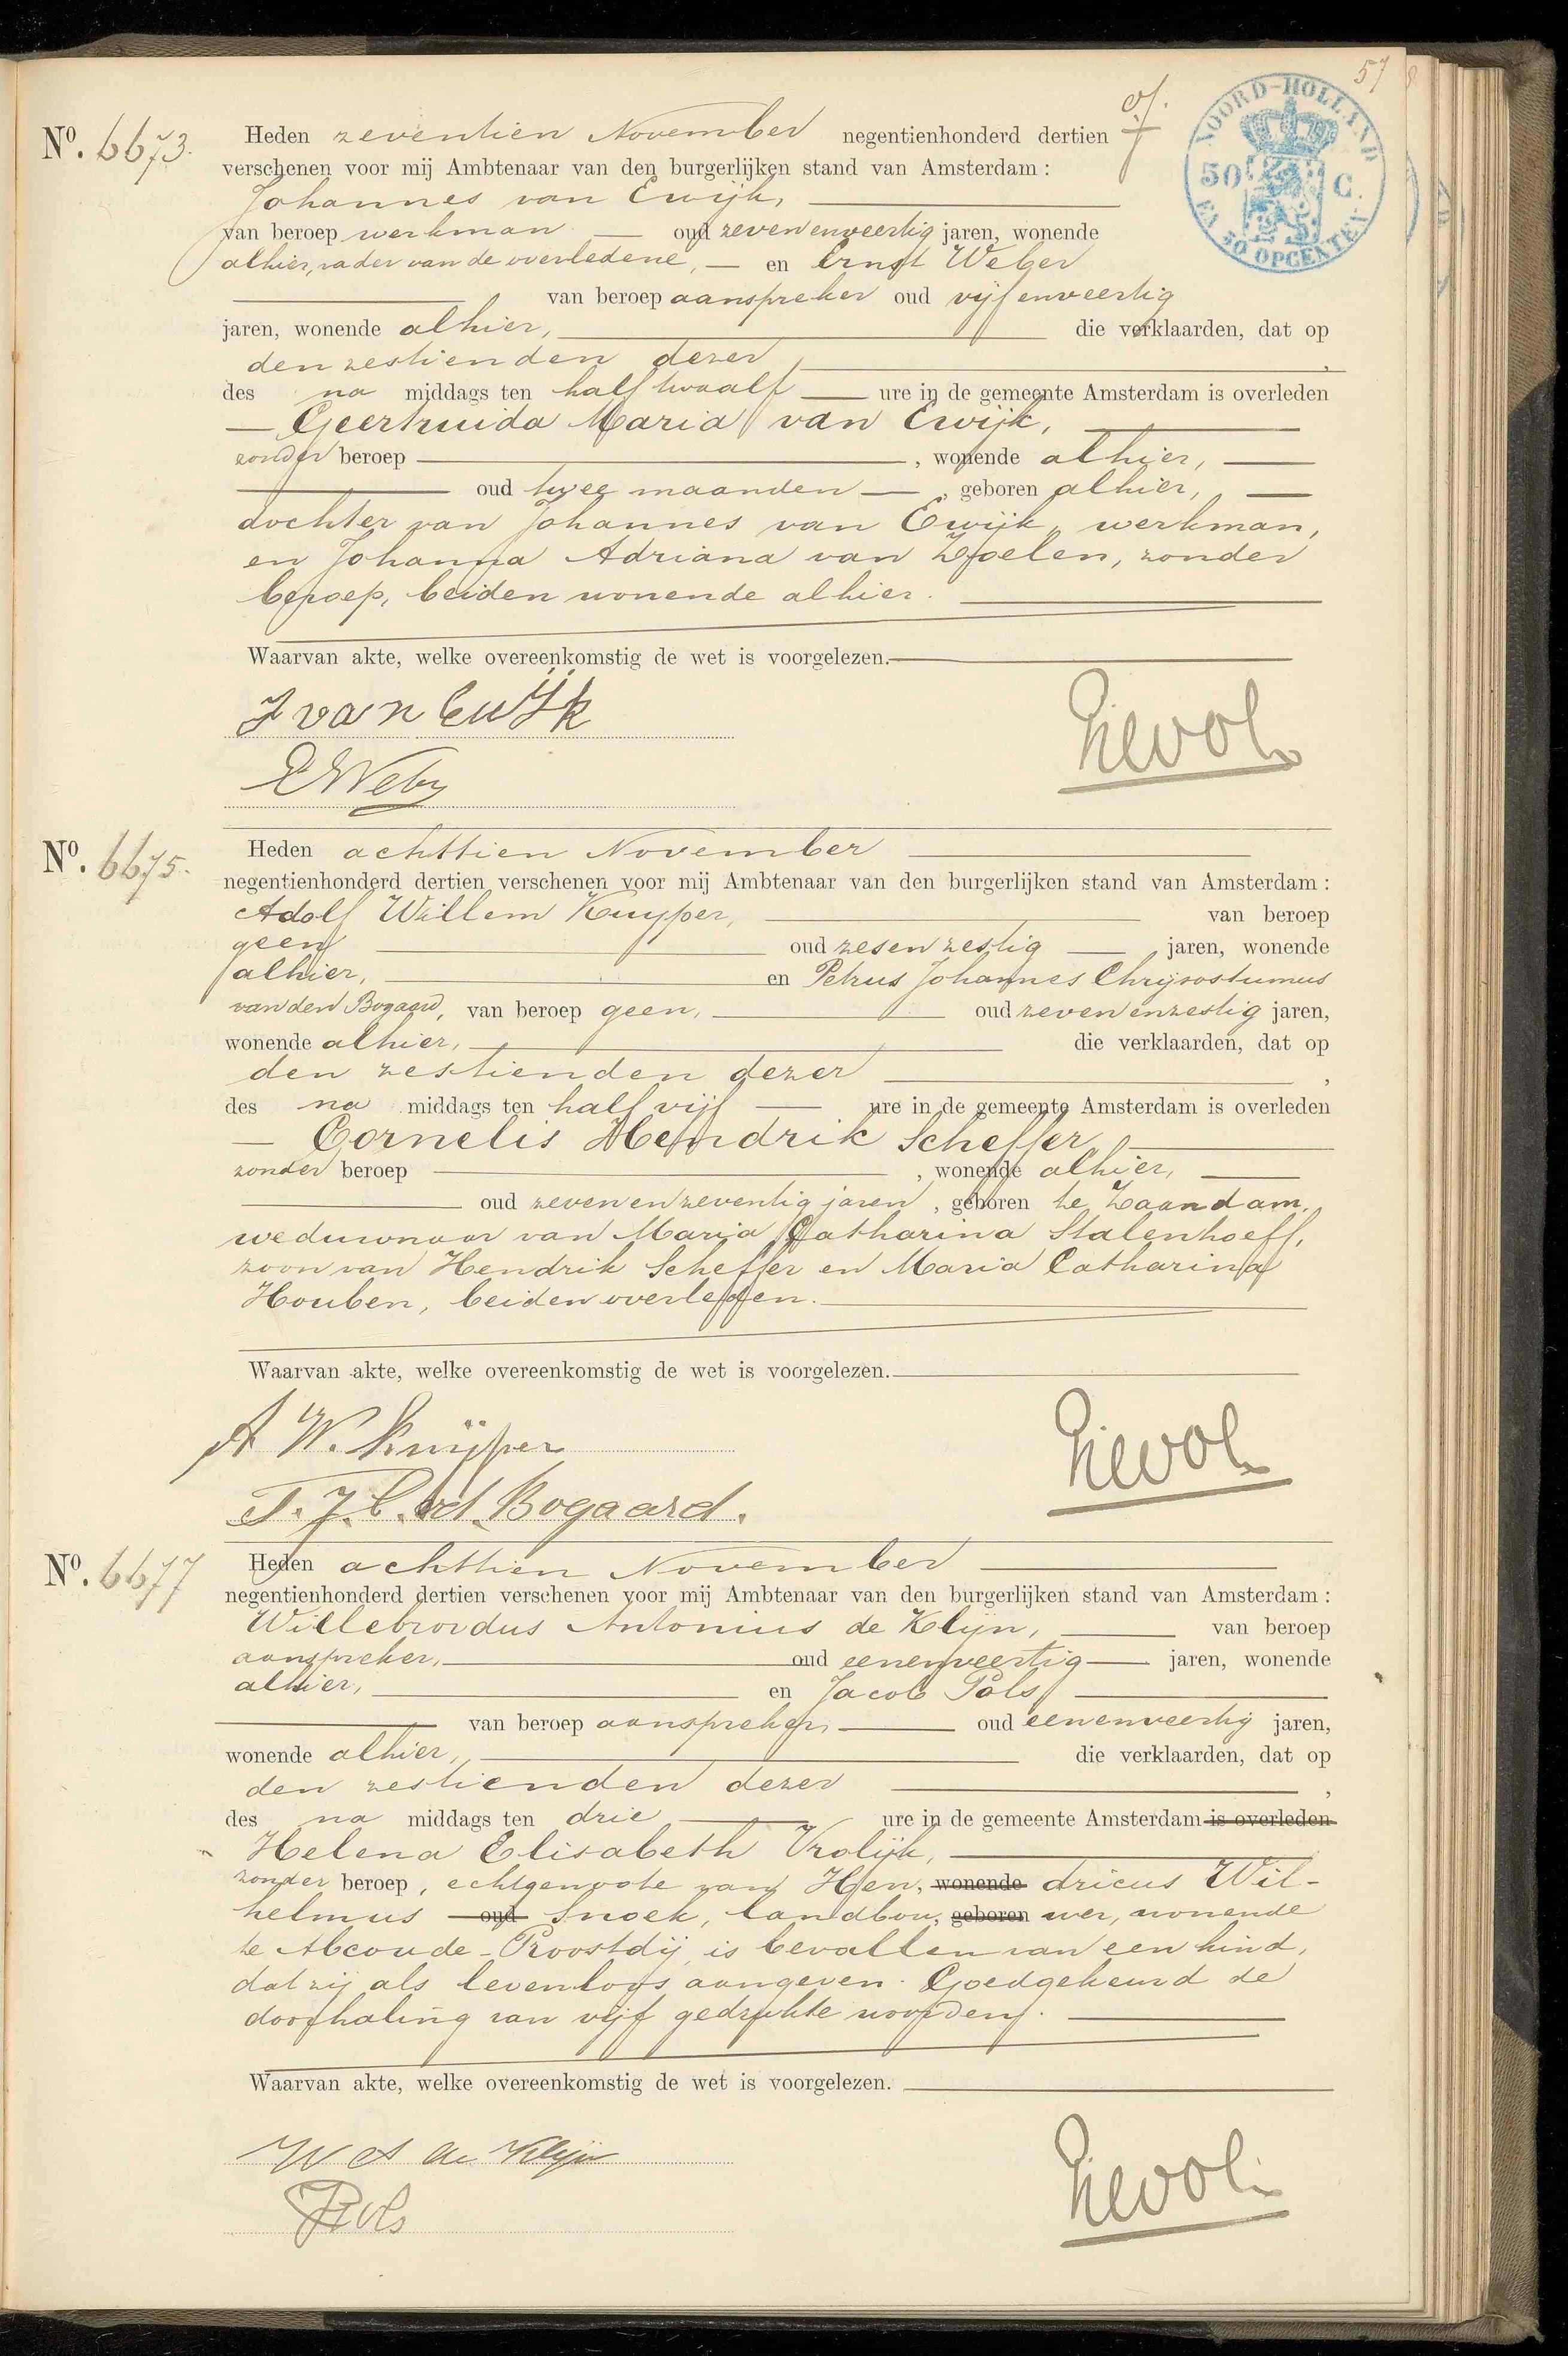 57
VOORD-HOLLAND
50 C.
EN 50 OPCENTEN.
No. 6673.
Heden zeventien November negentienhonderd dertien
verschenen voor mij Ambtenaar van den burgerlijken stand van Amsterdam:
Johannes van Ewijk,
van beroep werkman oud zevenenveertig jaren, wonende
alhier, vader van de overledene, en Ernst Weber
van beroep aanspreker oud vijfenveertig
jaren, wonende alhier, die verklaarden, dat op
den zestienden dezer,
des na middags ten half twaalf ure in de gemeente Amsterdam is overleden
Geertruida Maria van Ewijk,
zonder beroep, wonende alhier,
oud twee maanden, geboren alhier,
dochter van Johannes van Ewijk, werkman,
en Johanna Adriana van Zoelen, zonder
beroep, beiden wonende alhier.
Waarvan akte, welke overeenkomstig de wet is voorgelezen.
J van Ewijk
E Weber
No. 6675.
Heden achttien November
negentienhonderd dertien verschenen voor mij Ambtenaar van den burgerlijken stand van Amsterdam:
Adolf Willem Kuyper, van beroep
geen oud zesenzestig jaren, wonende
alhier, en Petrus Johannes Chrijsostumus
van den Bogaard, van beroep geen, oud zevenenzestig jaren,
wonende alhier, die verklaarden, dat op
den zestienden dezer,
des na middags ten half vijf ure in de gemeente Amsterdam is overleden
Cornelis Hendrik Scheffer,
zonder beroep, wonende alhier,
oud zevenenzeventig jaren, geboren te Zaandam,
weduwnaar van Maria Catharina Stalenhoeff,
zoon van Hendrik Scheffer en Maria Catharina
Houben, beiden overleden.
Waarvan akte, welke overeenkomstig de wet is voorgelezen.
A W. Kuijper
P. J. C. vd Bogaard.
No. 6677
Heden achttien November
negentienhonderd dertien verschenen voor mij Ambtenaar van den burgerlijken stand van Amsterdam:
Willebrordus Antonius de Klijn, van beroep
aanspreker, oud eenenveertig jaren, wonende
alhier, en Jacob Pols
van beroep aanspreker, oud eenenveertig jaren,
wonende alhier, die verklaarden, dat op
den zestienden dezer,
des na middags ten drie ure in de gemeente Amsterdam is overleden
Helena Elisabeth Vrolijk,
zonder beroep, echtgenoote van Hen, wonende dricus Wil-
helmus oud Snoek, landbou, geboren wer, wonende
te Abcoude-Proostdij, is bevallen van een kind,
dat zij als levenloos aangeven. Goedgekeurd de
doorhaling van vijf gedrukte woorden.
Waarvan akte, welke overeenkomstig de wet is voorgelezen.
W A de Klijn
J Pols